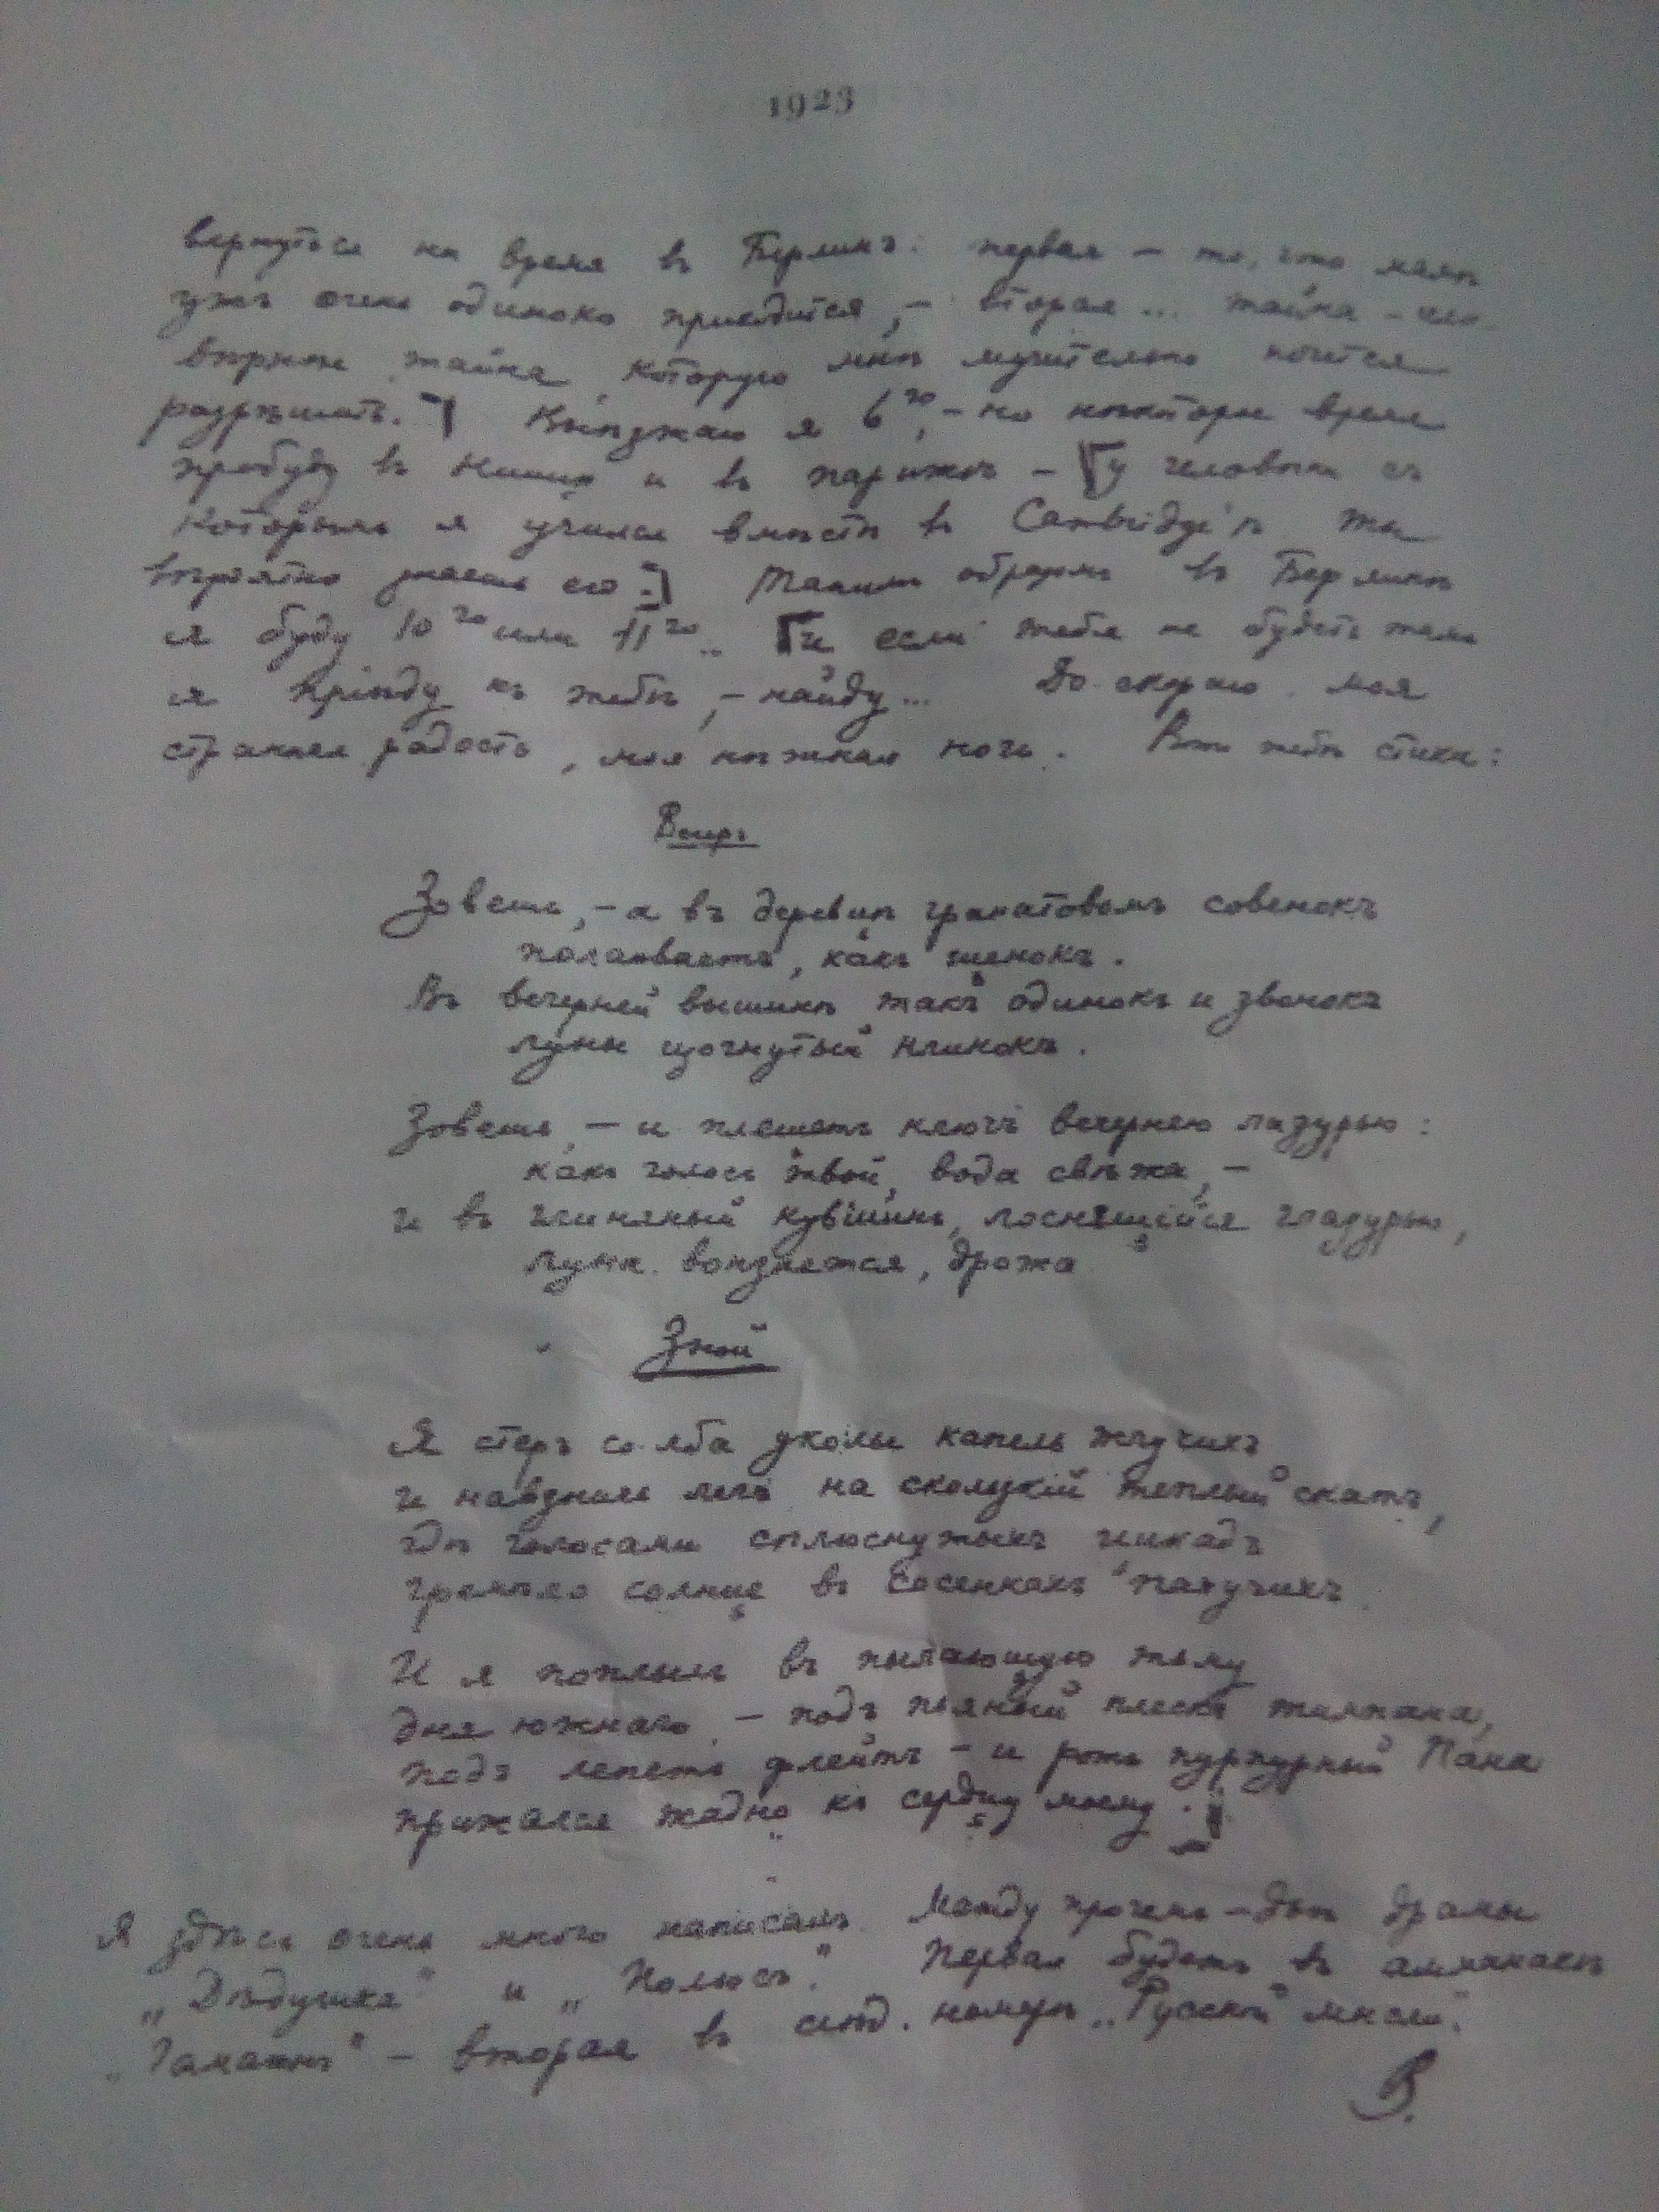 1923
вернуться на время в Берлинъ: первая – то, что мнѣ
ужъ очень одиноко приходится, – вторая... тайна –
вѣрнѣе тайна, которую мнѣ мучительно хочется
разрѣшать.] Выѣзжаю я 6го, – но нѣкоторое время
пробуду въ Ниццѣ и въ Парижѣ – [у человѣка съ
которымъ я учился вмѣстѣ въ Cambridge'ѣ Ты
вѣроятно знаешь его.] Такимъ образомъ въ Берлинѣ
я буду 10го или 11го.. [и если тебя не будетъ тамъ
я пріѣду къ тебѣ, – найду... До скораго моя
странная радость, моя нѣжная ночь. Вотъ тебѣ стихи:
Вечеръ
Зовешь, – а въ деревцѣ гранатовомъ совенокъ
полаиваетъ, какъ щенокъ.
Въ вечерней вышинѣ такъ одинокъ и звонокъ
луны изогнутый клинокъ.
Зовешь, – и плещетъ ключъ вечернею лазурью:
какъ голосъ твой, вода свѣжа, –
и въ глиняный кувшинъ, лоснящійся глазурью,
луна вонзается, дрожа
Зной
Я стеръ со лба уколы капель жгучихъ
и навзничь легъ на скользкій теплый скатъ,
гдѣ голосами сплюснутыхъ цикадъ
гремѣло солнце въ сосенкахъ пахучихъ.
И я поплылъ въ пылающую тьму
дня южнаго – подъ пьяный плескъ тимпана,
подъ лепетъ флейтъ – и ротъ пурпурный Пана
прижался жадно къ сердцу моему.]
Я здѣсь очень много написалъ. Между прочемъ – двѣ драмы
„Дѣдушка" и „Полюсъ". Первая будетъ въ альманахѣ
„Гамаюнъ" – вторая въ слѣд. номерѣ „Русской мысли".
В.